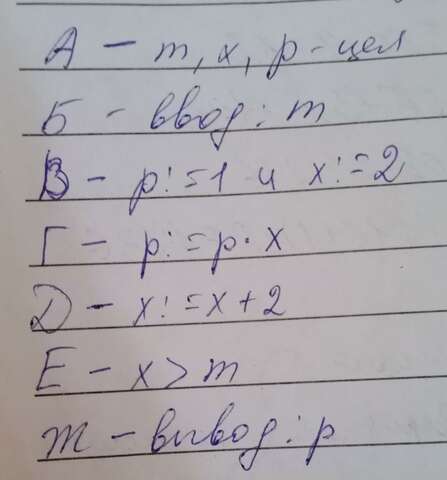 А - m, x, p - цел
Б - ввод: m
В - p:=1 и x:=2
Г - p:=p·x
Д - x:=x+2
Е - x>m
Ж - вывод: p